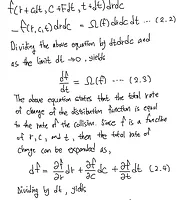 f(r+cdt, c+Fdt, t+dt)drdc
-f(r,c,t)drdc = Ω(f)drdcdt ... (2.2)
Dividing the above equation by dtdrdc and
as the limit dt→0, yields
df/dt = Ω(f) ... (2.3)
The above equation states that the total rate
of change of the distribution function is equal
to the rate of the collision. Since f is a function
of r, c, and t, then the total rate of
change can be expanded as,
df = ∂f/∂r dr + ∂f/∂c dc + ∂f/∂t dt (2.4)
Dividing by dt, yields